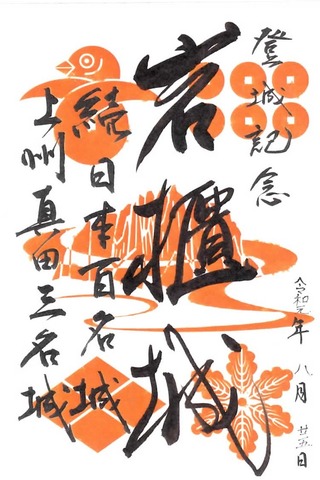 登城記念
岩櫃城
続日本百名城
上州真田三名城
令和元年 八月 廿五日